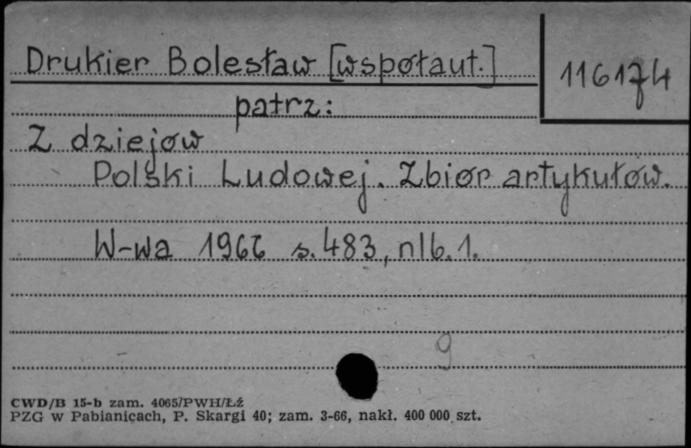 Drukier Bolesław [wspołaut.]
116174
patrz:
Z dziejow
Polski Ludowej. Zbiór artykułow.
W-wa 1966 s. 483, nlb. 1.
9
CWD/B 15-b zam. 4065/PWH/Łź
PZG w Pabianicach, P. Skargi 40; zam. 3-66, nakł. 400 000 szt.